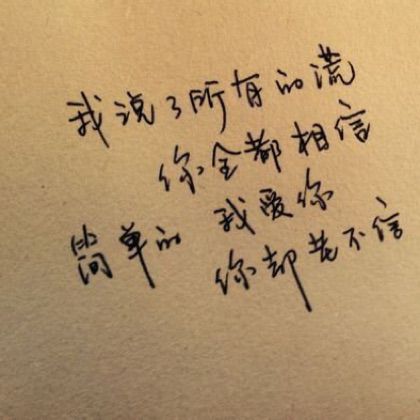 我说了所有的谎
你全都相信
简单的 我爱你
你却老不信